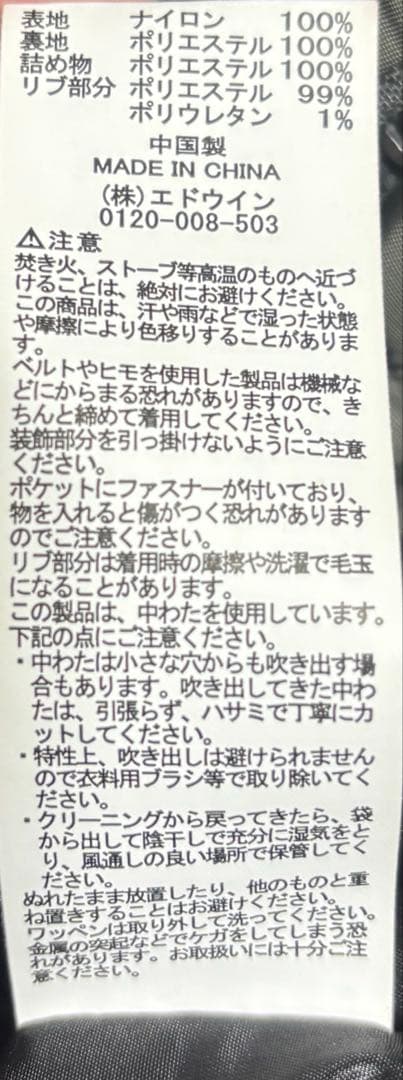 表地 ナイロン 100%
裏地 ポリエステル 100%
詰め物 ポリエステル 100%
リブ部分 ポリエステル 99%
ポリウレタン 1%
中国製
MADE IN CHINA
(株)エドウイン
0120-008-503
⚠注意
焚き火、ストーブ等高温のものへ近づ
けることは、絶対にお避けください。
この商品は、汗や雨などで湿った状態
や摩擦により色移りすることがありま
す。
ベルトやヒモを使用した製品は機械な
どにからまる恐れがありますので、き
ちんと締めて着用してください。
装飾部分を引っ掛けないようにご注意
ください。
ポケットにファスナーが付いており、
物を入れると傷がつく恐れがあります
のでご注意ください。
リブ部分は着用時の摩擦や洗濯で毛玉
になることがあります。
この製品は、中わたを使用しています。
下記の点にご注意ください。
・中わたは小さな穴からも吹き出す場
合もあります。吹き出してきた中わ
たは、引張らず、ハサミで丁寧にカ
ットしてください。
・特性上、吹き出しは避けられません
ので衣料用ブラシ等で取り除いてく
ださい。
・クリーニングから戻ってきたら、袋
から出して陰干しで充分に湿気をと
り、風通しの良い場所で保管してく
ださい。
ぬれたまま放置したり、他のものと重
ね置きすることはお避けください。
ワッペンは取り外して洗ってください。
金属の突起などでケガをしてしまう恐
れがあります。お取扱いには十分ご注
意ください。